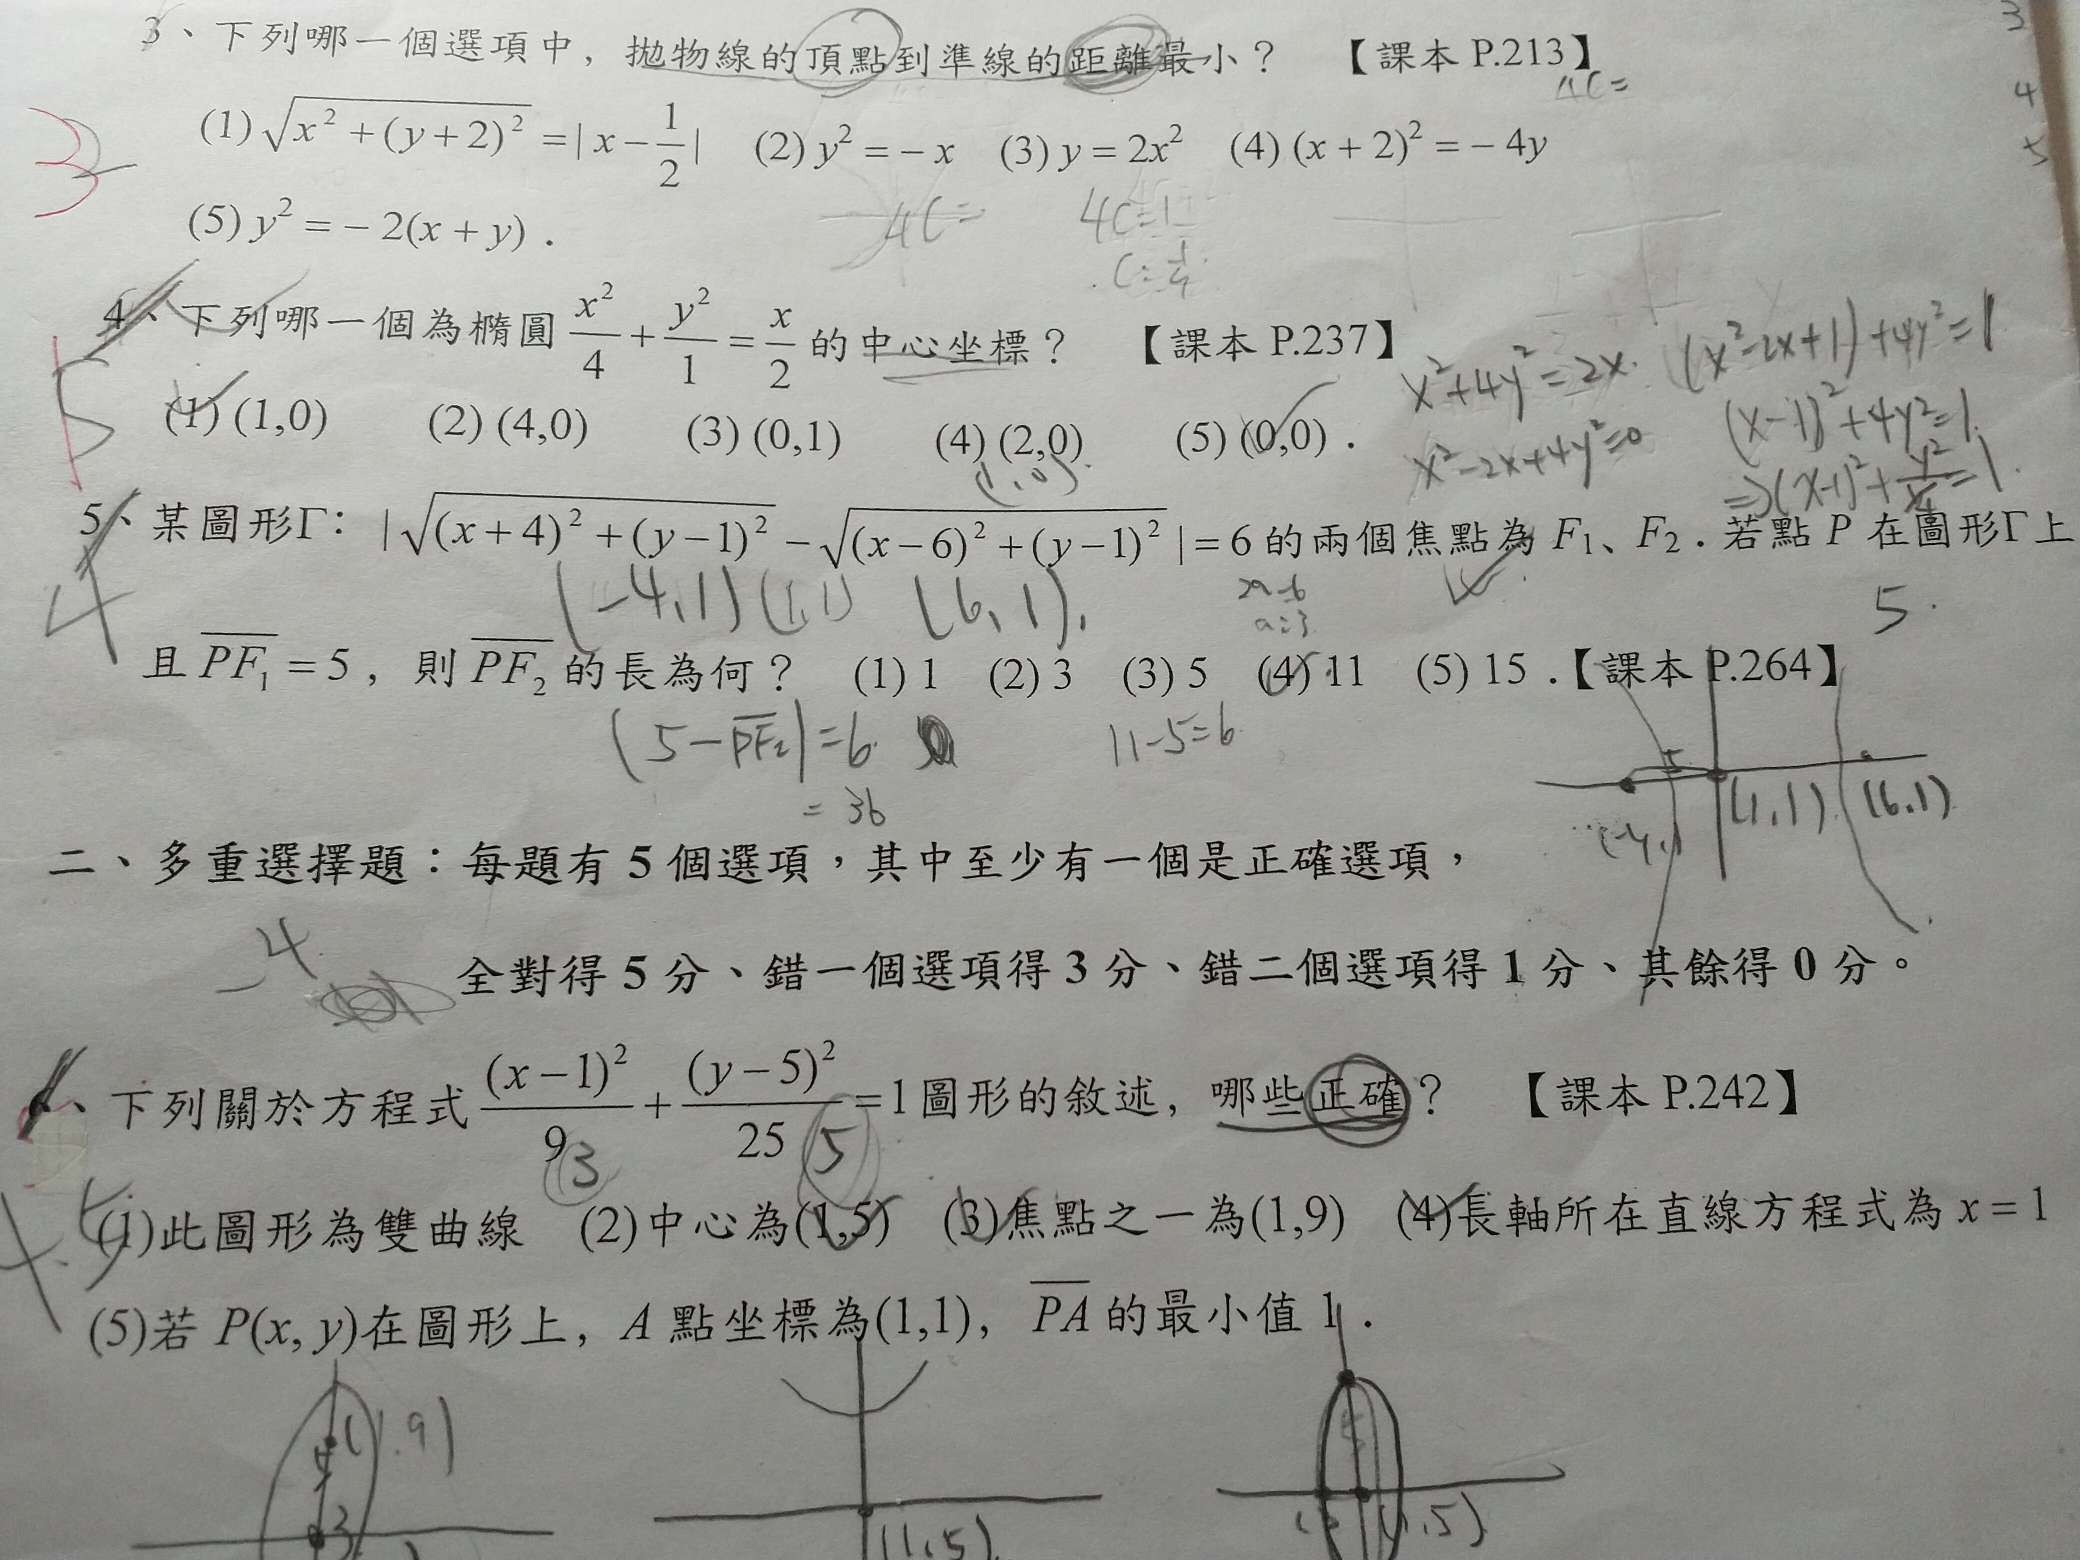 3、下列哪一個選項中，拋物線的頂點到準線的距離最小？ 【課本 P.213】
4C=
(1) √(x² + (y + 2)²) = | x − 1/2 | (2) y² = − x (3) y = 2x² (4) (x + 2)² = − 4y
3
(5) y² = − 2(x + y) .
4C=
4C=1
C=1/4
4、下列哪一個為橢圓 x²/4 + y²/1 = x/2 的中心坐標？ 【課本 P.237】
x²+4y²=2x.
(x²-2x+1)+4y²=1
(1) (1,0) (2) (4,0) (3) (0,1) (4) (2,0) (5) (0,0) .
x²-2x+4y²=0
(x-1)²+4y²=1.
(1,0)
⇒(x-1)²+y²/¼=1.
5、某圖形Γ： | √((x + 4)² + (y − 1)²) − √((x − 6)² + (y − 1)²) | = 6 的兩個焦點為 F₁、F₂．若點 P 在圖形Γ上
4
(-4,1) (1,1) (6,1).
2a=6
a=3
5.
且 PF₁ = 5 ，則 PF₂ 的長為何？ (1) 1 (2) 3 (3) 5 (4) 11 (5) 15 .【課本 P.264】
|5-PF₂|=6.
11-5=6.
= 36
5
(1,1) (6,1)
二、多重選擇題：每題有 5 個選項，其中至少有一個是正確選項，
-4
全對得 5 分、錯一個選項得 3 分、錯二個選項得 1 分、其餘得 0 分。
、下列關於方程式 (x − 1)²/9 + (y − 5)²/25 = 1 圖形的敘述，哪些正確？ 【課本 P.242】
3
5
(1)此圖形為雙曲線 (2)中心為(1,5) (3)焦點之一為(1,9) (4)長軸所在直線方程式為 x = 1
(5)若 P(x, y)在圖形上，A 點坐標為(1,1)，PA 的最小值 1 .
(1.9)
4
3
(1,5)
5
(1,5)
3
4
5